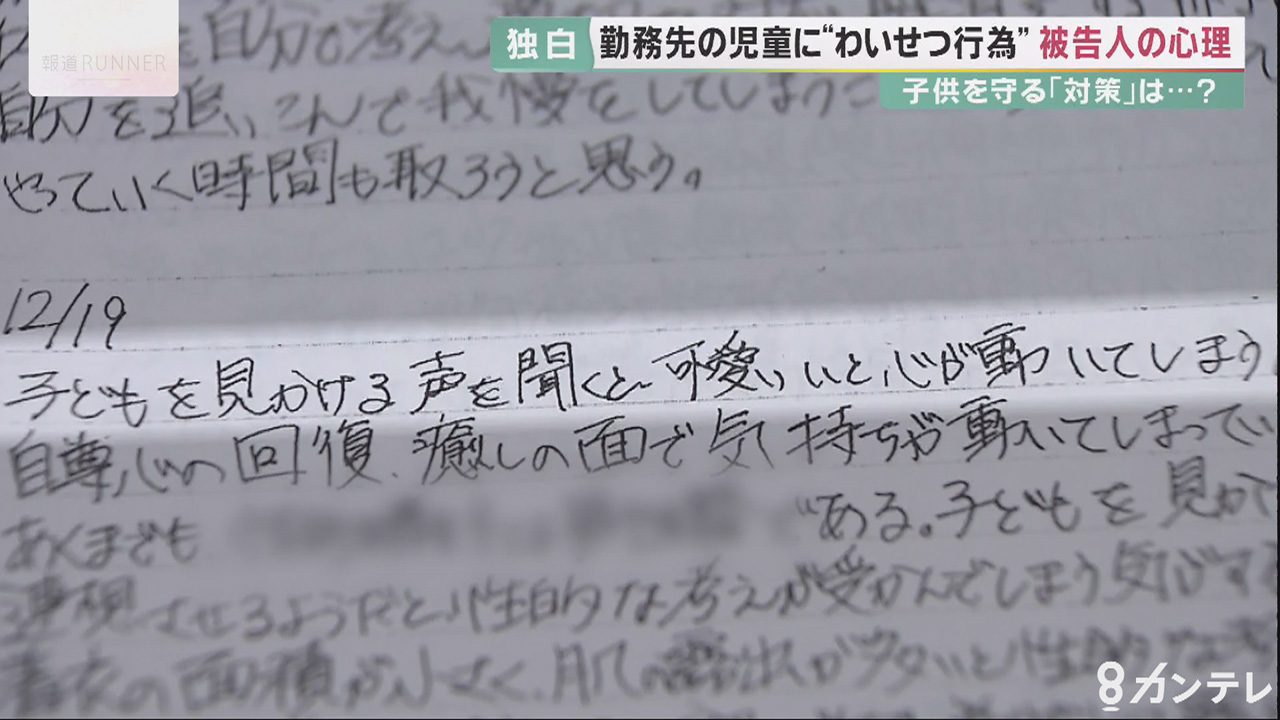 報道RUNNER
独白 勤務先の児童に“わいせつ行為” 被告人の心理
子供を守る「対策」は…？
を自分で考え
自分を追いこんで我慢をしてしまう
やっていく時間も取ろうと思う。
12/19
子どもを見かける声を聞くと可愛いいと心が動いてしまう
自尊心の回復、癒しの面で気持ちが動いてしまってい
あくまでも
ある。子どもを見か
させるようだと性的な考えが浮かんでしまう気がす
の面積が小さく、肌の露出が多いと性的な
8カンテレ